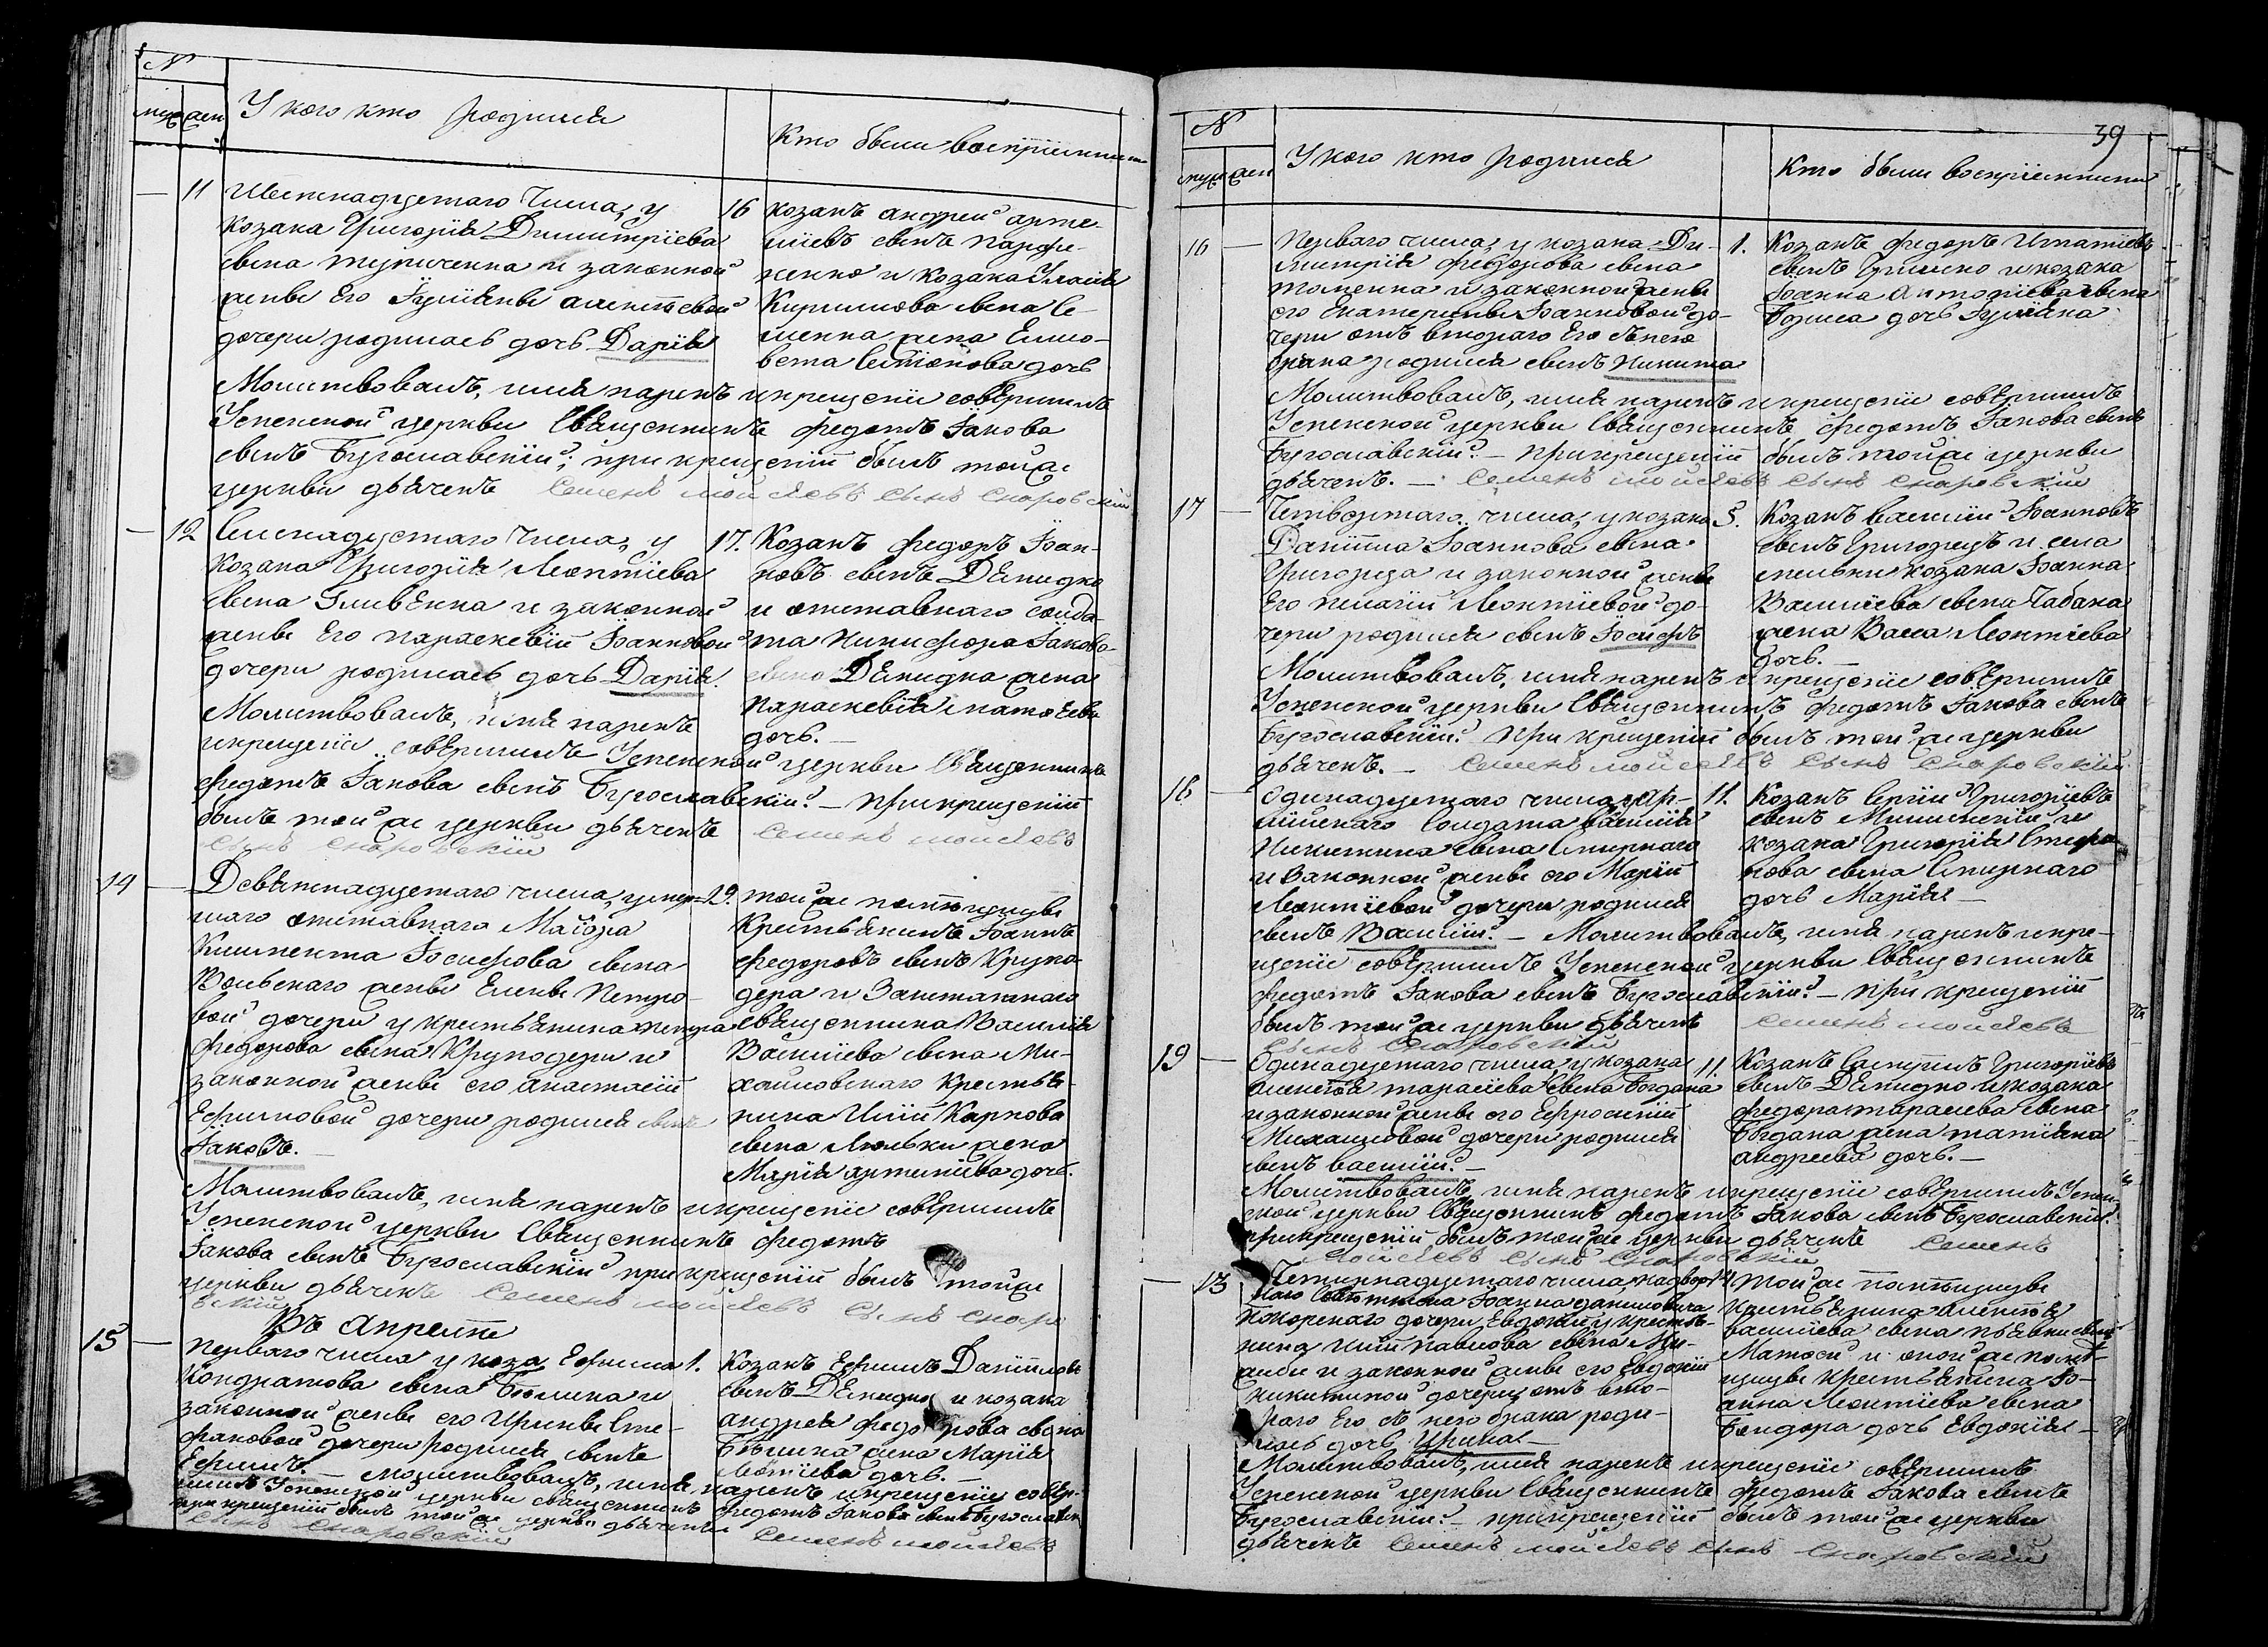 N
муж жен
У кого кто родился
Кто были восприемники
11
Шестнадцетаго числа, у
козака Григорія Димитріева
сына и законной
жены его Гуліяны Алексѣевой
дочери родилась дочь Дарія
16
козакъ андрей арте-
міевъ сынъ парфи-
ненко и козака
Кирилова сына Се-
менна жена Елисо-
вета Симіонова дочь
Молитвовалъ, имя нарекъ и крещеніе совершилъ
Успенской церкви Священникъ федотъ Іакова
сынъ Бугославскій; при крещеніи былъ тойже
церкви дьячекъ Семенъ мойсѣевъ сынъ Снаровскій
12
Семнадцетаго числа, у
козака Григорія Леонтіева
сына и законной
жены Его параскевіи Іоанновой
дочери родилась дочь Дарія.
17.
Козакъ федоръ Іоан-
новъ сынъ Демидко
и отставнаго солда-
та никифора Іакова
сына Демидка жена
параскевія
дочь.
Молитвовалъ, имя нарекъ
и крещеніе совершилъ Успенской церкви Священникъ
федотъ Іакова сынъ Бугославскій. — при крещеніи
былъ той же церкви дьячекъ Семенъ мойсѣевъ
сынъ Снаровскій
14
Девятнадцетаго числа, умер-
шаго отставнаго Маіора
Климента Іосифова сына
Вольскаго жены Елены Петро-
вой дочери у крестьянина петра
федорова сына Круподери и
законной жены его анастасіи
Ефимовой дочери родился сынъ
Іаковъ.
19.
той же помѣщицы
Крестьянинъ Іоаннъ
федоровъ сынъ Крупо-
дера и Заштатнаго
священника Василія
Василіева сына Ми-
хайловскаго Крестья-
нина Иліи Карпова
сына Люльки жена
Марія артиміева дочь.
Молитвовалъ, имя нарекъ и крещеніе совершилъ
Успенской церкви Священникъ федотъ
Іакова сынъ Бугославскій при крещеніи былъ тойже
церкви дьячекъ Семенъ мойсѣевъ сынъ Снаро
вскій
Въ Апрелѣ
15
перваго числа у коза Ефима
Кондратова сына и
законной жены его Ирины Сте-
фановой дочери родился сынъ
Ефимъ.
1.
Козакъ Ефимъ Даніиловъ
сынъ Демидко и козака
андрея федорова сына
жена Марія
дочь.
— молитвовалъ, имя нарекъ и крещеніе совер-
шилъ Успенской церкви священникъ федотъ Іакова сынъ Бугославск
при крещеніи былъ той же церкви дьячекъ Семенъ мойсѣевъ
сынъ Снаровскій
39
N
муж жен
У кого кто родился
Кто были восприемники
16
Перваго числа, у козака Ди-
митрія федорова сына
и законной жены
его Екатерины Іоанновой до-
чери отъ втораго Его съ нею
брака родился сынъ Никита
1.
Козакъ федоръ Игнатіевъ
сынъ Гришко и козака
Іоанна Антоніева сына
дочь Гуліана
Молитвовалъ, имя нарекъ и крещеніе совершилъ
Успенской церкви Священникъ федотъ Іакова сынъ
Бугославскій. — при крещеніи былъ тойже церкви
дьячекъ. — Семенъ мойсѣевъ сынъ Снаровскій
17
Четвертаго числа, у козака
Даніила Іоаннова сына
Григорца и законной жены
Его пелагіи Леонтіевой до-
чери родился сынъ Іосифъ
5.
Козакъ василій Іоанновъ
сынъ Григорецъ и села
козака Іоанна
Василіева сына Чабана
жена Васса Леонтіева
дочь. —
Молитвовалъ, имя нарекъ и крещеніе совершилъ
Успенской церкви Священникъ федотъ Іакова сынъ
Бугославскій. при крещеніи былъ той же церкви
дьячекъ. — Семенъ мойсѣевъ сынъ Снаровскій
18
Одинадцетаго числа, у Ар-
мійскаго Солдата василія
Никитина сына Смирнаго
и Законной жены его Маріи
Леонтіевой дочери родился
сынъ Василій. —
11.
Козакъ Сергій Григоріевъ
сынъ и
козака Григорія Стефа-
нова сына Смирнаго
дочь Марія —
Молитвовалъ, имя нарекъ и кре-
щеніе совершилъ Успенской церкви Священникъ
федотъ Іакова сынъ Бугославскій. — при крещеніи
былъ той же церкви дьячекъ Семенъ мойсѣевъ
сынъ Снаровскій
19
Одинадцетаго числа, у козака
Алексѣя тарасіева сына Богдана
и законной жены его Ефросиніи
Михайловой дочери родился
сынъ василій. —
11.
Козакъ Григоріевъ
сынъ Демидко и козака
федора тарасіева сына
Богдана жена татіяна
андреева дочь. —
Молитвовалъ имя нарекъ и крещеніе совершилъ Успен-
ской церкви Священникъ федотъ Іакова сынъ Бугославскій.
при крещеніи былъ той же церкви дьячекъ Семенъ
мойсѣевъ сынъ Снаровскій
13
Четирнадцетаго числа, надвор-
наго Совѣтника Іоанна даниловича
дочери Евдокіи у крестья-
нина Иліи павлова сына
и законной жены его Евдокіи
никитиной дочери, отъ вто-
раго Его съ нею брака роди-
лась дочь Ирина —
14
той же помѣщицы
крестьянина Алексѣя
василіева сына
и оной же помѣ-
щицы крестьянина Іо-
анна Леонтіева сына
Бондара дочь Евдокія —
Молитвовалъ, имя нарекъ и крещеніе совершилъ
Успенской церкви Священникъ федотъ Іакова сынъ
Бугославскій. — при крещеніи былъ той же церкви
дьячекъ Семенъ мойсѣевъ сынъ Снаровскій